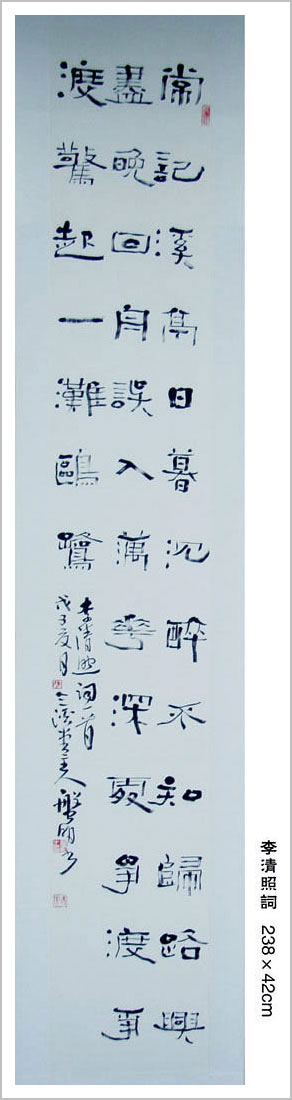 常記溪亭日暮沉醉不知歸路興
盡晚回舟誤入藕花深處爭渡爭
渡驚起一灘鷗鷺
李清照詞一首
戊子夏月
李清照詞 238×42cm